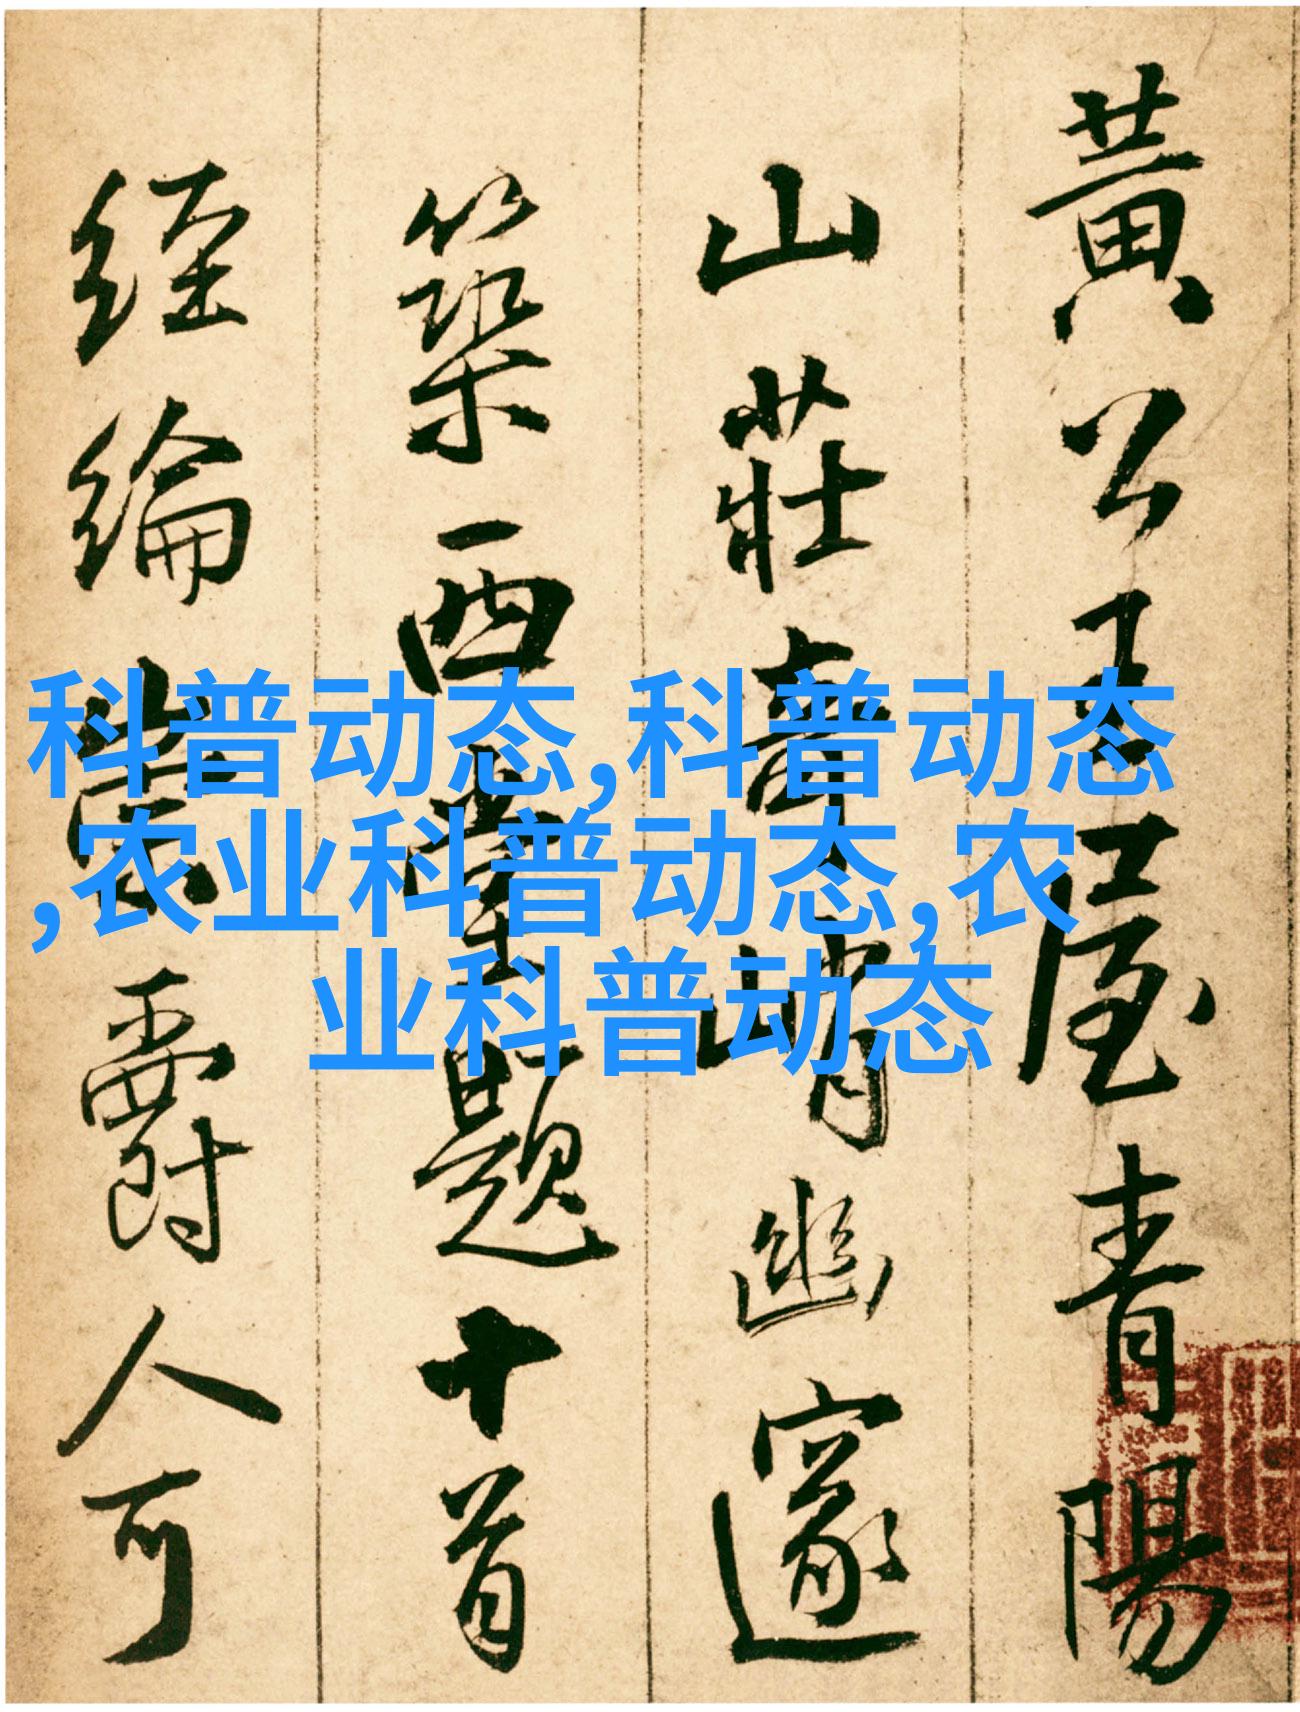 黃公王屋青陽
山莊壽峭幽邃
築西堂題十首
經綸崇爵人可
科普动态,科普动态
,农业科普动态,农
业科普动态